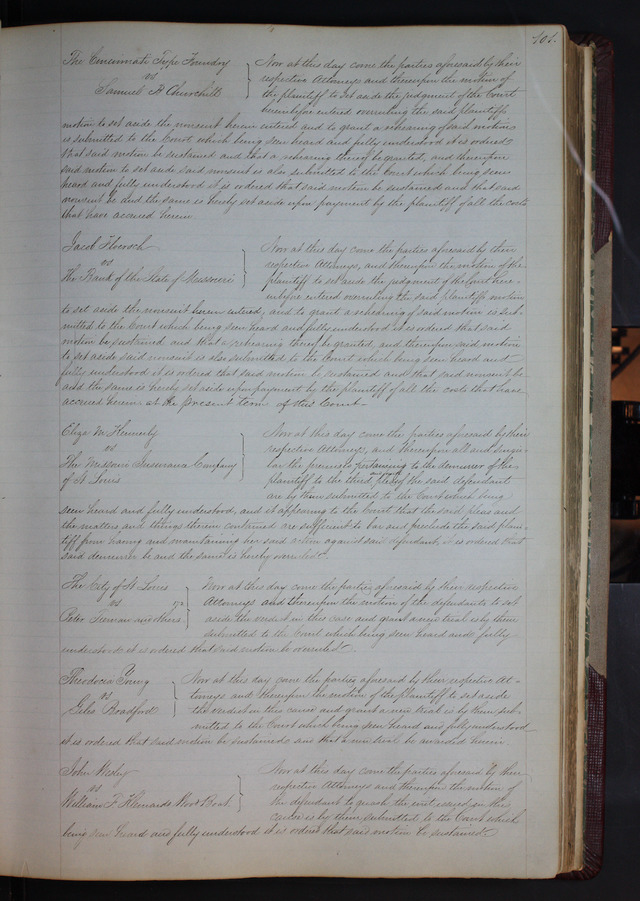 401.
The Cincinnati Type Foundry
vs
Samuel B Churchill
Now at this day come the parties aforesaid by their
respective Attorneys and thereupon the motion of
the plaintiff to set aside the judgment of the Court
hereinbefore entered overruling the said plaintiffs
motion to set aside the nonsuit herein entered and to grant a rehearing of said motion
is submitted to the Court which being seen heard and fully understood it is ordered
that said motion be sustained and that a rehearing thereof be granted, and thereupon
said motion to set aside said nonsuit is also submitted to the Court which being seen
heard and fully understood it is ordered that said motion be sustained and that said
nonsuit be and the same is hereby set aside upon payment by the plaintiff of all the costs
that have accrued herein
Jacob
vs
The Bank of the State of Missouri
Now at this day come the parties aforesaid by their
respective Attorneys, and thereupon the motion of the
plaintiff to set aside the judgment of the Court here-
inbefore entered overruling the said plaintiffs motion
to set aside the nonsuit herein entered, and to grant a rehearing of said motion is sub-
mitted to the Court which being seen heard and fully understood it is ordered that said
motion be sustained and that a rehearing thereof be granted, and thereupon said motion
to set aside said nonsuit is also submitted to the Court which being seen heard and
fully understood it is ordered that said motion be sustained and that said nonsuit be
and the same is hereby set aside upon payment by the plaintiff of all the costs that have
accrued herein at the present term of this Court-
Eliza M Kennerly
vs
The Missouri Insurance Company
of St Louis
Now at this day come the parties aforesaid by their
respective Attorneys, and thereupon all and singu-
lar the premises pertaining to the demurrer of the
plaintiff to the third plea of the said defendant
are by them submitted to the Court which being
seen heard and fully understood, and it appearing to the Court that the said pleas and
the matters and things therein contained are sufficient to bar and preclude the said plain-
tiff from having and maintaining her said action against said defendant, it is ordered that
said demurrer be and the same is hereby overruled.
The City of St Louis
vs
Peter and others
Now at this day come the parties aforesaid by their respective
Attorneys and thereupon the motion of the defendants to set
aside the verdict in this case and grant a new trial is by them
submitted to the Court which being seen heard and fully
understood it is ordered that said motion be overruled
Theodocia Young
vs
Giles Bradford
Now at this day come the parties aforesaid by their respective At-
torneys and thereupon the motion of the plaintiff to set aside
the verdict in this cause and grant a new trial is by them sub-
mitted to the Court which being seen heard and fully understood
it is ordered that said motion be sustained and that a new trial be awarded herein.
John Wesley
vs
William F
Now at this day come the parties aforesaid by their
respective Attorneys and thereupon the motion of
the defendant to quash the writ issued in this
cause is by them submitted to the Court which
being seen heard and fully understood it is ordered that said motion be sustained